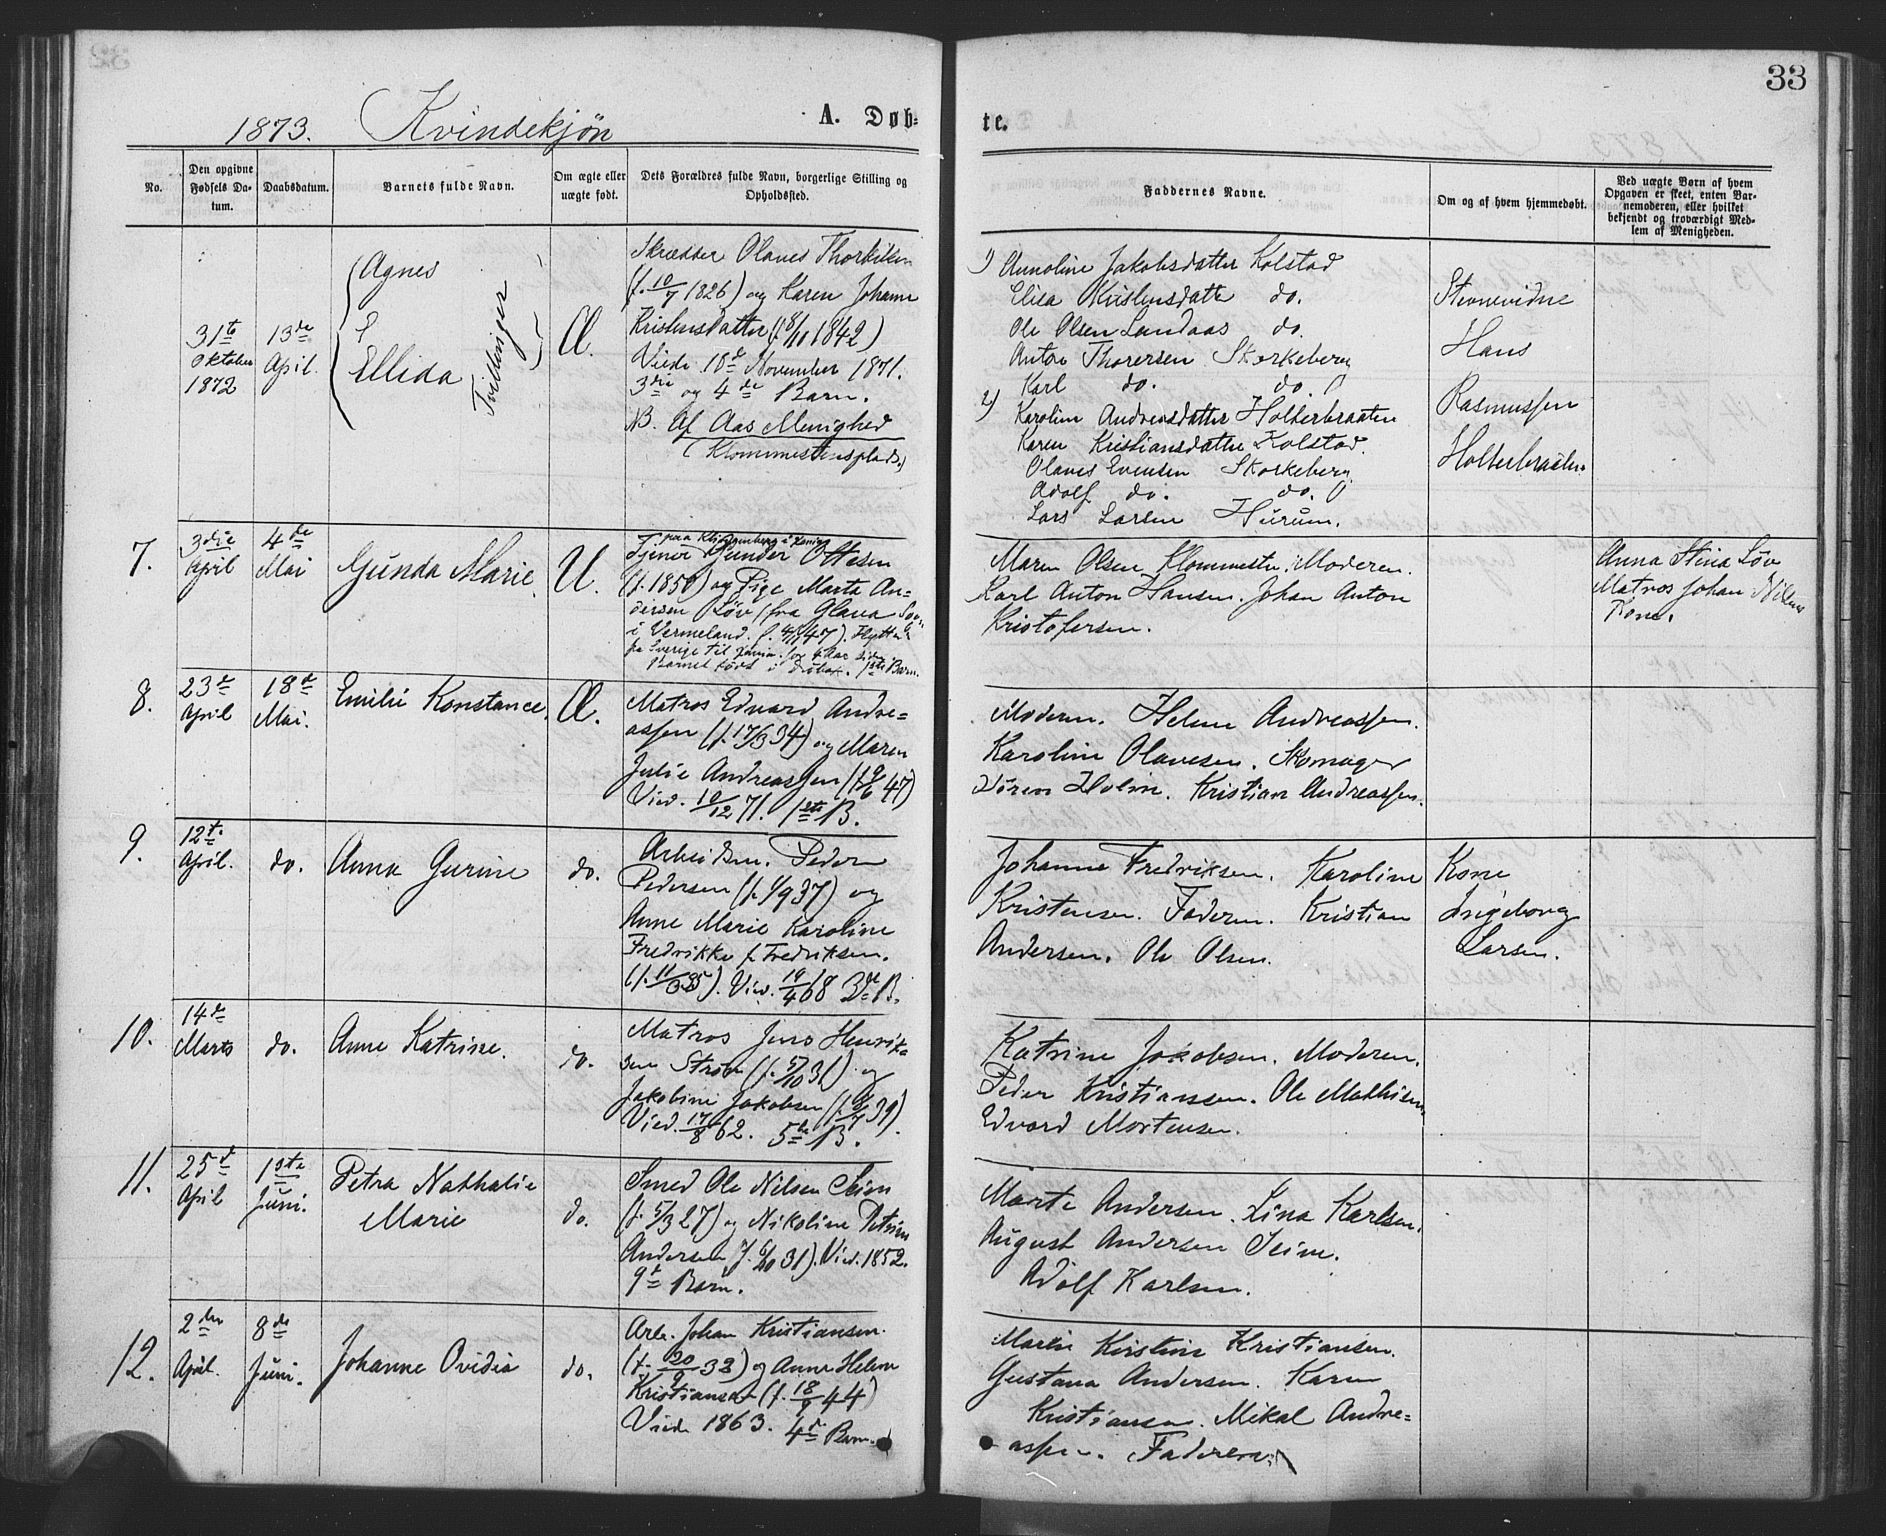 33
1873. Kvindekjøn
A. Døb-
te.
No.
Den opgivne Fødsels Da-tum.
Daabsdatum.
Barnets fulde Navn.
Om ægte eller uægte født.
Dets Forældres fulde Navn, borgerlige Stilling og Opholdssted.
Faddernes Navne.
Om og af hvem hjemmedøbt.
Ved uægte Børn af hvem Opgaven er skeet, enten Bar-nemoderen, eller hvilket bekjendt og troværdigt Med-lem af Menigheden.
31te Oktober 1872
13de April.
Agnes
&
Ellida
Tvillinger
Æ.
Skrædder Olaves Thorkilsen
(f. 10/7 1826) og Karen Johanne
Kristensdatter (f. 8/11 1842)
Viede 18d November 1871.
3die og 4de Barn.
NB. Af Aas Menighed
(Klommestensplads.)
1) Annoline Jakobsdatter Kolstad
Elisa Kristensdatter do.
Ole Olsen Landaas do.
Anton Thorersen Skorkeberg
Karl do. do.
2) Karoline Andreasdatter Holterbraaten
Karen Kristiansdatter Kolstad.
Olaves Evensen Skorkeberg
Adolf do. do.
Lars Larsen Hurum.
Stevnevidne
Hans
Rasmussen
Holterbraaten
7.
3die April
4de Mai
Gunda Marie.
U.
Tjener Gunder Ottesen
(f. 1850) og Pige Marta An-
dersen Løv (fra Glava Sogn
i Vermeland. f. 4/11 47). Flyttet
fra Sverige til for 4 Aar siden
Barnet født i Drøbak. 1ste Barn.
Maren Olsen Klommesten. Moderen.
Karl Anton Hansen. Johan Anton
Kristofersen.
Anna Stina Løv
Matros Johan Nilsens
Kone.
8.
23d April
18d Mai.
Emilie Konstance.
Æ.
Matros Edvard Andre-
assen (f. 17/3 34) og Maren
Julie Andreassen (f. 9/6 47)
Vied. 10/12 71. 1ste B.
Moderen. Helene Andreassen.
Karoline Olavesen. Skomager
Søren Holm. Kristian Andreassen.
9.
12te April.
do.
Anna Gurine
do.
Arbeidsm. Peder
Pedersen (f. 1/9 37) og
Anne Marie Karoline
Fredrikke f. Fredriksen.
(f. 11/3 35). Vied. 19/4 68 3die B.
Johanne Fredriksen. Karoline
Kristensen. Faderen. Kristian
Andersen. Ole Olsen.
Kone
Ingeborg
Larsen.
10.
14de Marts
do.
Anne Katrine.
do.
Matros Jens Henrik-
sen Strøm (f. 5/10 31) og
Jakobine Jakobsen (f. 6/7 39).
Vied. 17/8 62. 5te B.
Katrine Jakobsen. Moderen.
Peder Kristiansen. Ole Mathisen
Edvard Mortensen.
11.
25d April
1ste Juni.
Petra Nathalie
Marie
do.
Smed Ole Nilsen Seim
(f. 5/3 27) og Nikoline Petrine
Andersen f. 6/10 31). Vied. 1852.
9d Barn.
Marte Andersen. Lina Karlsen.
August Andersen Seim.
Adolf Karlsen.
12.
2den April.
8de Juni.
Johanne Ovidia
do.
Arb. Johan Kristiansen.
(f. 20/9 33) og Anne Helene
Kristiansen (f. 18/9 44)
Viede 1863. 4d Barn.
Martin Kirstine Kristiansen.
Gustava Andersen. Karen
Kristiansen. Mikal Andre-
assen. Faderen.